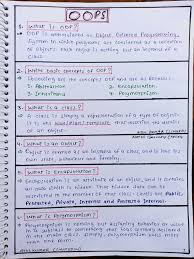 OOPS
1. What is OOP?
OOP is abbreviated as Object Oriented Programming
System in which programs are considered as a collection
of objects. Each object is nothing but an instance of a
class.
2. Write basic concepts of OOP?
Following are the concepts of OOP and are as follows:
1. Abstraction 2. Encapsulation
3. Inheritance 4. Polymorphism
3. What is a class?
A class is simply a representation of a type of object.
It is the blueprint / template that describes
of an object.
4. What is an object?
An object is an instance of a class. It has its
own state, behaviour and
5. What is Encapsulation?
Encapsulation is an attribute of an object, and it contains
all data which is hidden. That hidden data can be
restricted to the members of that class. Levels are Public,
Protected, Private, Internal and Protected Internal.
6. What is Polymorphism?
Polymorphism is nothing but assigning behavior or value
in a subclass to something that was already declared
in the main class. Simply, polymorphism takes
more than one form.